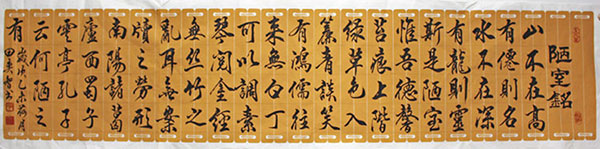 陋室銘
山不在高
有僊則名
水不在深
有龍則靈
斯是陋室
惟吾德馨
苔痕上階
綠草色入
簾青談笑
有鴻儒往
來無白丁
可以調素
琴閱金經
無絲竹之
亂耳無案
牘之勞形
南陽諸葛
廬西蜀子
雲亭孔子
云何陋之
有
歲次乙未荷月